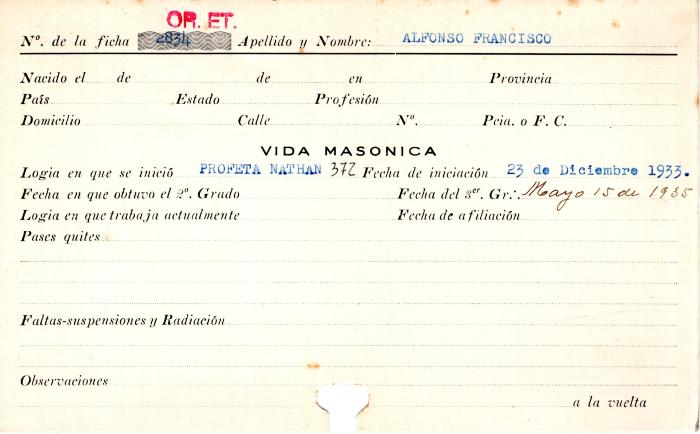 OR. ET.
Nº. de la ficha 2834 Apellido y Nombre: ALFONSO FRANCISCO
Nacido el de de en Provincia
País Estado Profesión
Domicilio Calle Nº. Pcia. o F. C.
VIDA MASONICA
Logia en que se inició PROFETA NATHAN 372 Fecha de iniciación 23 de Diciembre 1933.
Fecha en que obtuvo el 2º. Grado Fecha del 3er. Gr∴ Mayo 15 de 1935
Logia en que trabaja actualmente Fecha de afiliación
Pases quites
Faltas-suspensiones y Radiación
Observaciones
a la vuelta